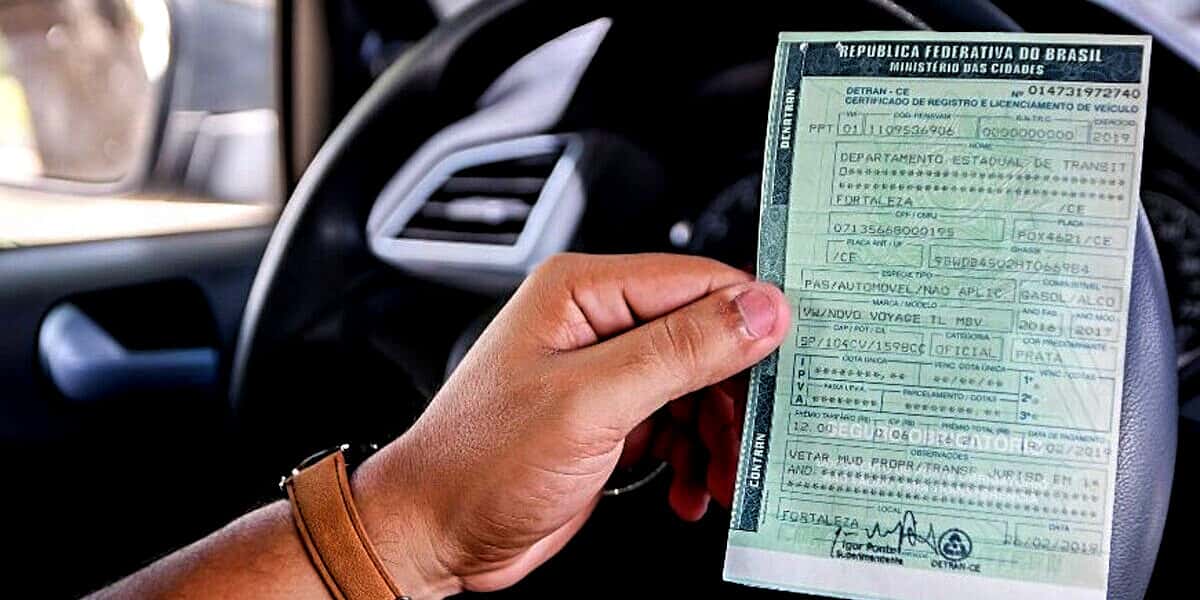 REPÚBLICA FEDERATIVA DO BRASIL
MINISTÉRIO DAS CIDADES
DENATRAN
DETRAN - CE Nº 014731972740
CERTIFICADO DE REGISTRO E LICENCIAMENTO DE VEÍCULO
VIA CÓD. RENAVAM R.N.T.R.C. EXERCÍCIO
PPT 01 1109536906 0000000000 2019
NOME
DEPARTAMENTO ESTADUAL DE TRANSIT
O
FORTALEZA /CE
CPF / CNPJ PLACA
07135668000195 POX4621/CE
PLACA ANT / UF CHASSI
/CE 9BWDB45U2HT066984
ESPÉCIE TIPO COMBUSTÍVEL
PAS/AUTOMOVEL/NAO APLIC GASOL/ALCO
MARCA / MODELO ANO FAB. ANO MOD.
VW/NOVO VOYAGE TL MBV 2016 2017
CAP / POT / CIL CATEGORIA COR PREDOMINANTE
5P/104CV/1598CC OFICIAL PRATA
IPVA
COTA ÚNICA VENC. COTA ÚNICA VENC. / COTAS
********,** **/**/** 1ª
FAIXA I.P.V.A. PARCELAMENTO / COTAS 2ª
3ª
PRÊMIO TARIFÁRIO (R$) IOF (R$) PRÊMIO TOTAL (R$) DATA DE PAGAMENTO
12.00 0.06
SEGURO OBRIGATÓRIO
OBSERVAÇÕES
VETAR MUD PROPR/TRANSF JURISD EM 1*
AND.
CONTRAN
LOCAL DATA
FORTALEZA 26/02/2019
Igor Ponte
Superintendente
DETRAN-CE